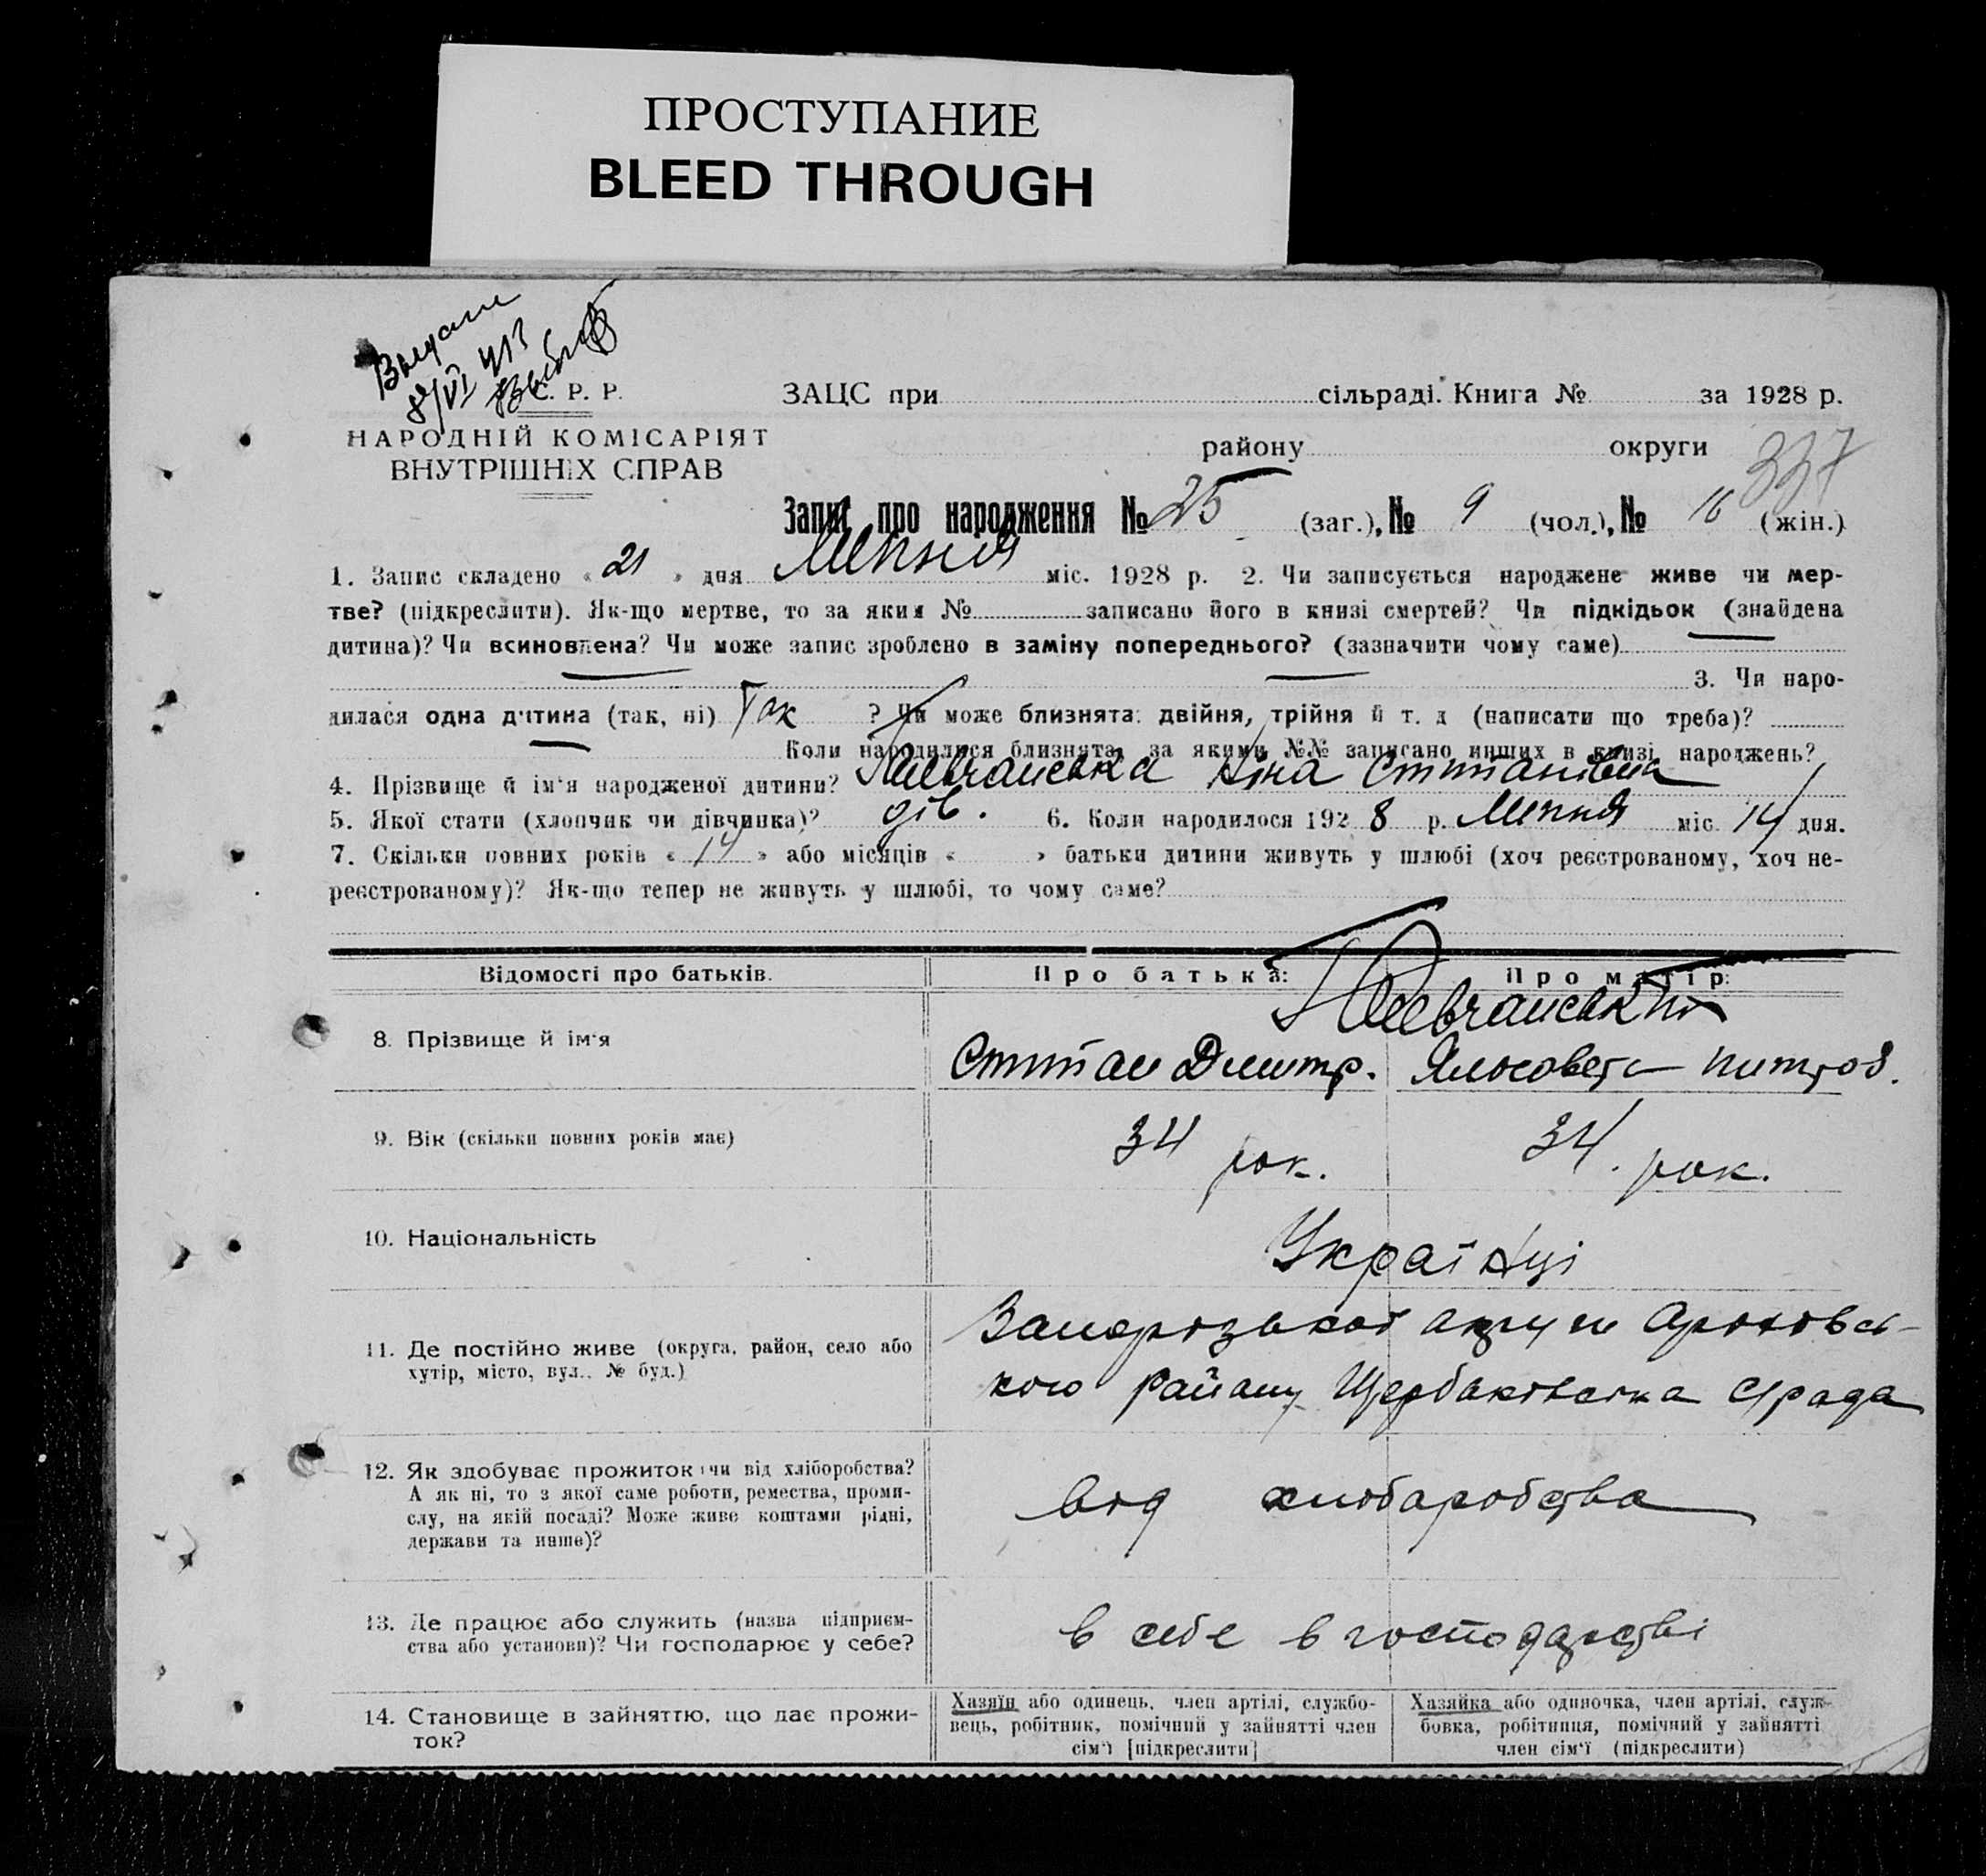 ПРОСТУПАНИЕ
BLEED THROUGH
С. Р. Р.
ЗАЦС при сільраді. Книга № за 1928 р.
НАРОДНІЙ КОМІСАРІЯТ
ВНУТРІШНІХ СПРАВ
району округи
337
Запис про народження № 25 (заг.), № 9 (чол.), № 16 (жін.)
1. Запис складено « 21 » дня Липня міс. 1928 р. 2. Чи записується народжене живе чи мер-
тве? (підкреслити). Як-що мертве, то за яким № записано його в книзі смертей? Чи підкідьок (знайдена
дитина)? Чи всиновлена? Чи може запис зроблено в заміну попереднього? (зазначити чому саме)
3. Чи наро-
дилася одна дитина (так, ні) Так ? Чи може близнята: двійня, трійня й т. д (написати що треба)?
Коли народилися близнята, за якими №№ записано инших в книзі народжень?
4. Прізвище й ім'я народженої дитини? Шевчанська Ніна
5. Якої стати (хлопчик чи дівчинка)? дів. 6. Коли народилося 192 8 р. Липня міс. 14 дня.
7. Скільки повних років « 14 » або місяців « » батьки дитини живуть у шлюбі (хоч реєстрованому, хоч не-
реєстрованому)? Як-що тепер не живуть у шлюбі, то чому саме?
Відомості про батьків. Про батька: Про матір:
8. Прізвище й ім'я
Дмитр.
9. Вік (скільки повних років має) 34 рок. 34. рок.
10. Національність Українці
11. Де постійно живе (округа, район, село або
хутір, місто, вул., № буд.)
кого району Щербаківська с/рада
12. Як здобуває прожиток чи від хліборобства?
А як ні, то з якої саме роботи, ремества, проми-
слу, на якій посаді? Може живе коштами рідні,
держави та инше)?
від хлібаробства
13. Де працює або служить (назва підприєм-
ства або установи)? Чи господарює у себе?
в себе в господарстві
14. Становище в зайняттю, що дає прожи-
ток?
Хазяїн або одинець, член артілі, службо-
вець, робітник, помічний у зайнятті член
сім'ї [підкреслити]
Хазяйка або одиночка, член артілі, служ-
бовка, робітниця, помічний у зайнятті
член сім'ї (підкреслити)